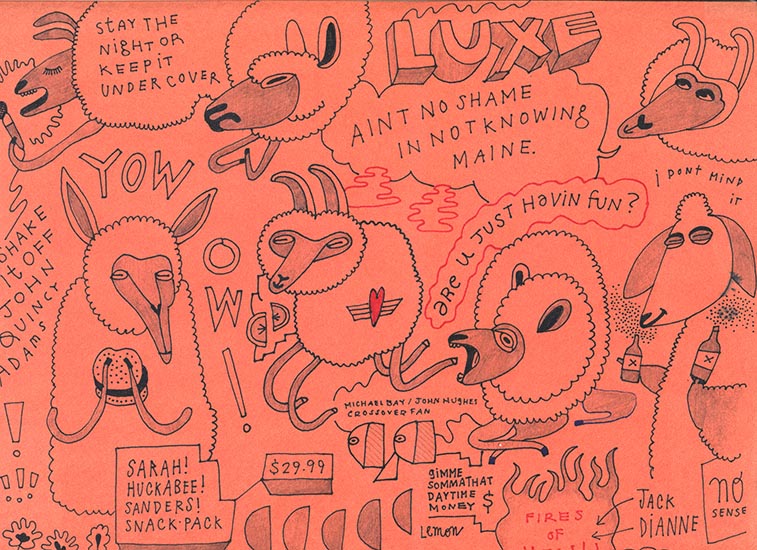 STAY THE
NIGHT OR
KEEP IT
UNDER COVER
LUXE
AINT NO SHAME
IN NOT KNOWING
MAINE.
I DONT MIND
IT
YOW
OW!
ARE U JUST HAVIN FUN?
SHAKE
IT OFF
JOHN
QUINCY
ADAMS
!
!!!
MICHAEL BAY / JOHN HUGHES
CROSSOVER FAN
SARAH!
HUCKABEE!
SANDERS!
SNACK-PACK
$29.99
GIMME
SOMMATHAT
DAYTIME
MONEY $
LEMON
FIRES
OF
JACK
DIANNE
NO
SENSE
X
X